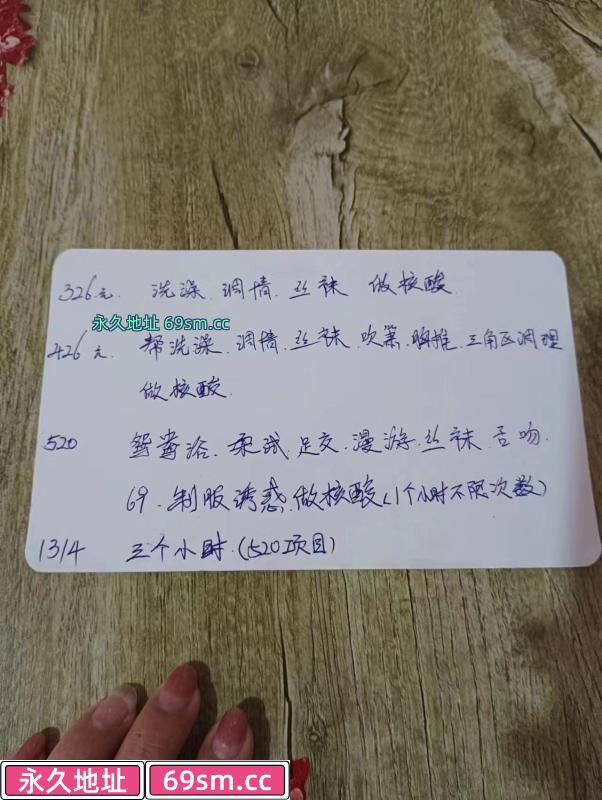 326元. 洗澡. 调情. 丝袜 做核酸
永久地址 69sm.cc
426元. 帮洗澡. 调情. 丝袜. 吹箫. 胸推. 三角区调理
做核酸.
520 鸳鸯浴. 柔式. 足交. 漫游. 丝袜. 舌吻.
69. 制服诱惑. 做核酸 (1个小时不限次数)
1314 三个小时. (520项目)
永久地址 69sm.cc